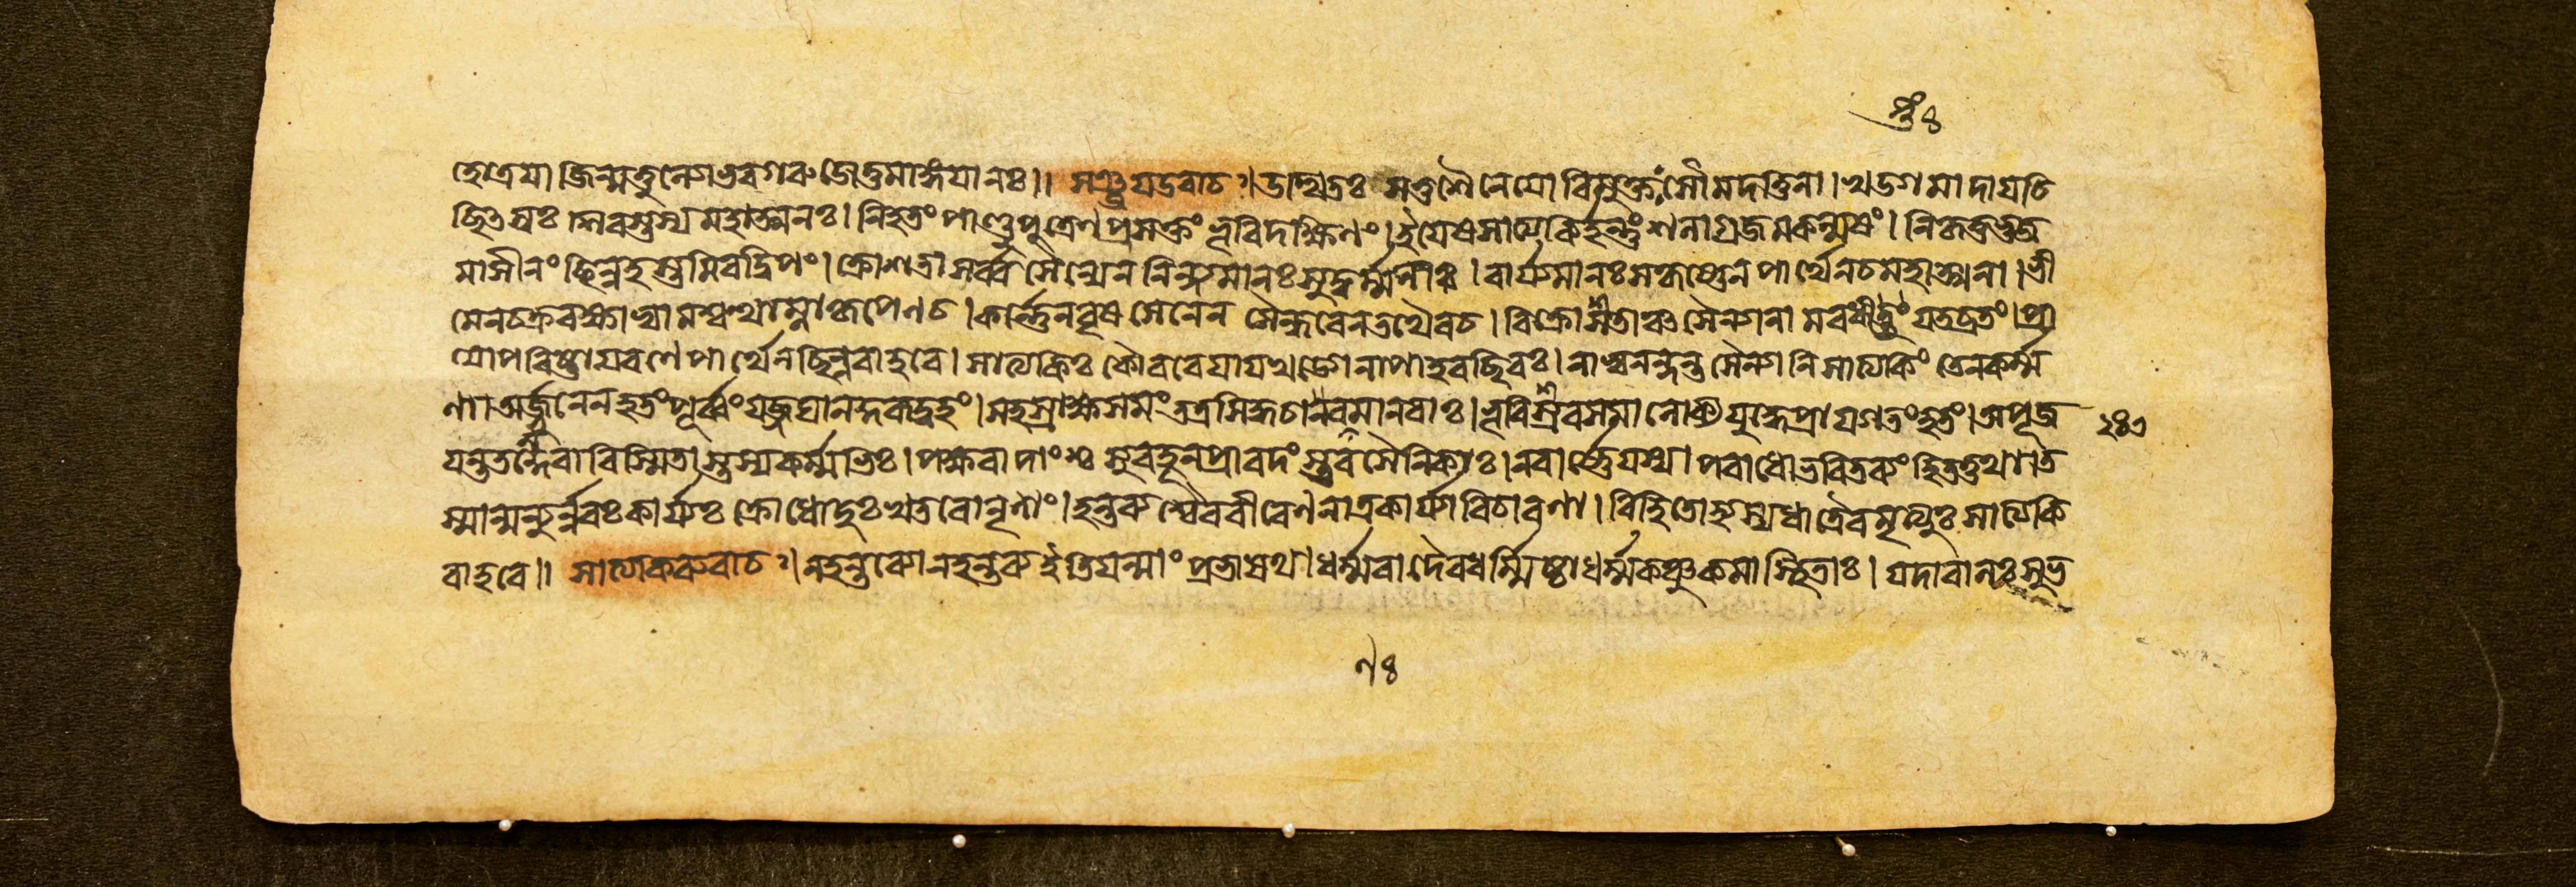 জেতুমার্হংযানঃ।। সঞ্জয উবাচ ।। উত্থিতঃ সতু শৈনেযো বিমুক্তঃ সৌমদত্তিনা। খড্গমাদাযচি
চ্ছিত্সুঃ শিরস্তস্য মহাত্মনঃ। নিহতং পাণ্ডুপুত্রেণ প্রসক্তং ভূরিদক্ষিণং। ইযেষ সাত্যকির্হন্তুং শলাগ্রজমকল্মষং। নিকৃত্তভুজ
মাসীনং ছিন্নহস্তমিবদ্বিপং। ক্রোশতাং সর্ব্বসৈন্যেন নিন্দ্যমানঃ সুদুর্ম্মনাঃ। বার্য্যমানঃ সকৃষ্ণেন পার্থেনচমহাত্মনা। ভী
মেনচক্ররক্ষাভ্যামশ্বত্থাম্নাকৃপেণচ। কর্ণেন বৃষসেনেন সৈন্ধবেনতথৈবচ। বিক্রোশতাঞ্চ সৈন্যানামবধীত্তং যতব্রতং। প্রা
যোপবিষ্টাযরণে পার্থেনছিন্নবাহবে। সাত্যকিঃ কৌরবেযাযখড্গেনাপাহরচ্ছিরঃ। নাভ্যনন্দন্ত সৈন্যানি সাত্যকিং তেনকর্ম্ম
ণা। অর্জ্জুনেনহতং পূর্ব্বং যজ্জঘান কুরূদ্বহং। সহস্রাক্ষসমং তত্রসিদ্ধচারণমানবাঃ। ভূরিশ্রবসমালোক্য যুদ্ধেপ্রাযগতংহতং। অপূজ
যন্ততন্দেবা বিস্মিতাস্তস্যকর্ম্মভিঃ। পক্ষবাদাংশ্চ সুবহূনপ্রাবদংস্তবসৈনিকাঃ। নবার্ষ্ণেযস্যাপরাধোভবিতব্যংহিতত্তথা। ত
স্মান্মন্যুর্ন্নবঃকার্য্যঃ ক্রোধোদুঃখতরোনৃণাং। হন্তব্যশ্চৈববীরেণ নাত্রকার্য্যাবিচারণা। বিহিতোহ্যস্যধাত্রৈবমৃত্যুঃ সাত্যকি
রাহবে।। সাত্যকিরুবাচ ।। নহন্তব্যোনহন্তব্য ইতিযন্মাং প্রভাষথ। ধর্ম্মবাদৈরধর্ম্মিষ্ঠাধর্ম্মকঞ্চুকমাস্থিতাঃ। যদাবালঃ সুভ